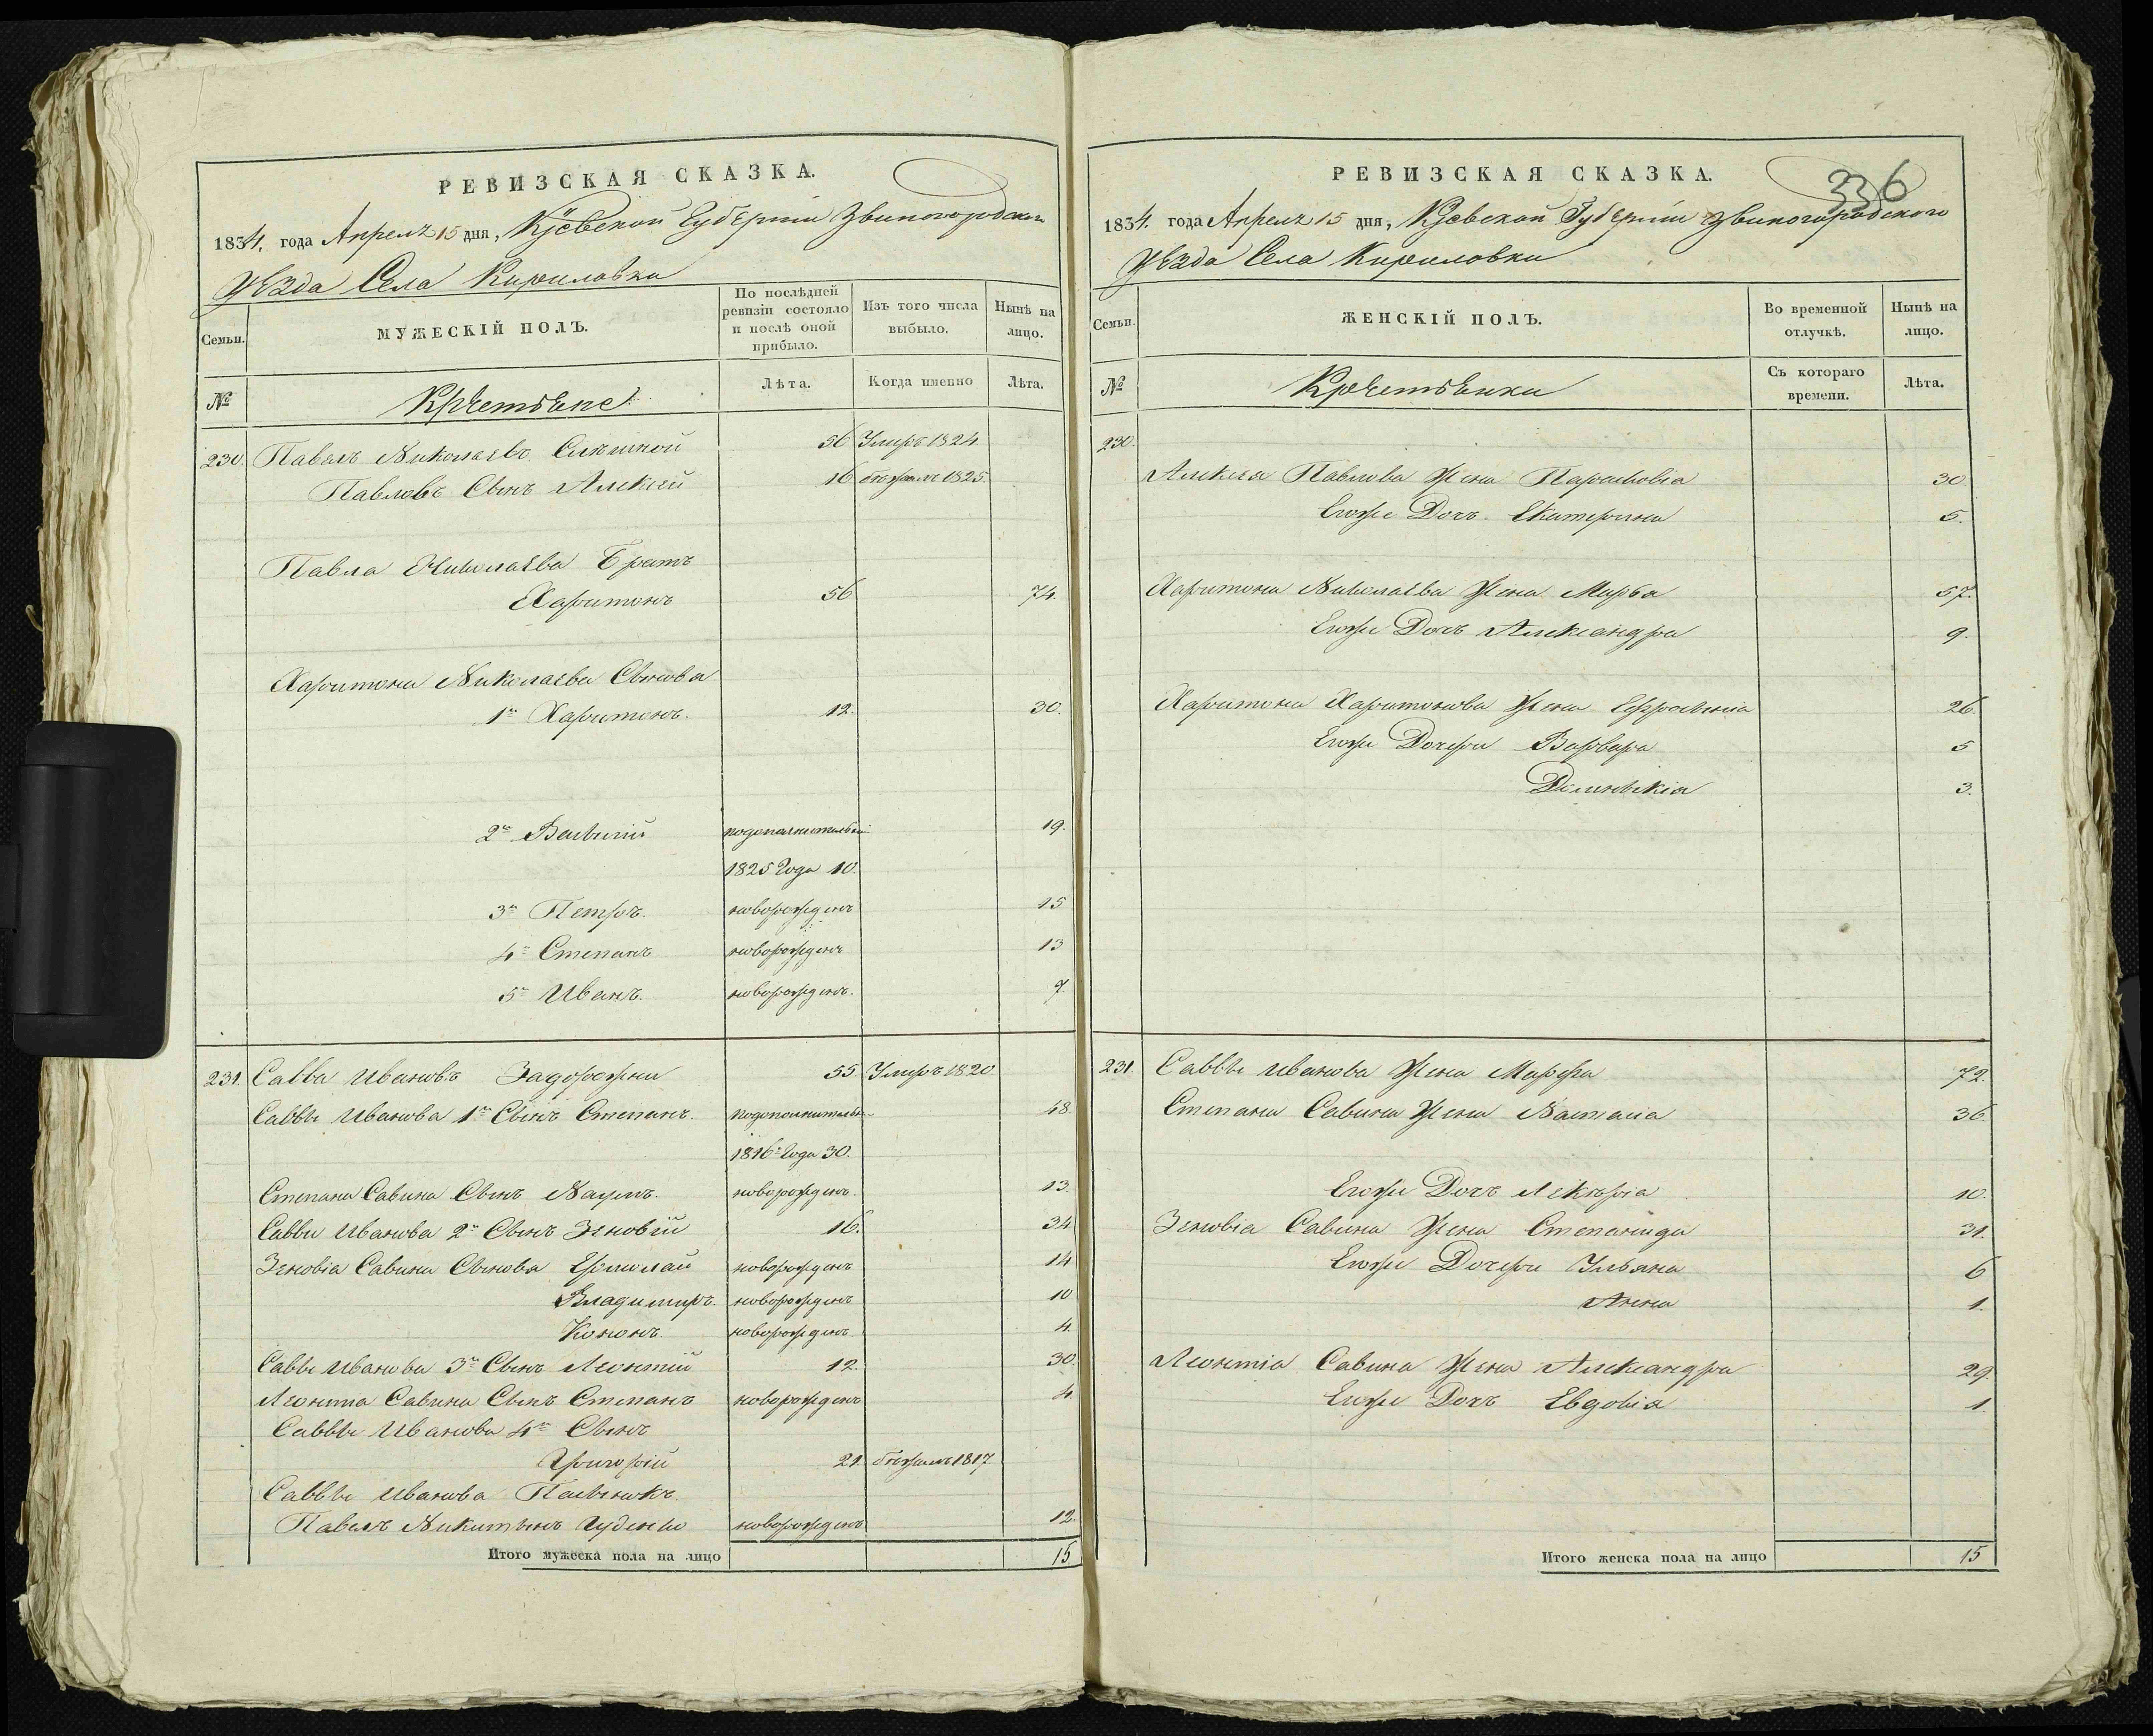 РЕВИЗСКАЯ СКАЗКА.
1834. года Апреля 15 дня, Кіевской Губерніи Звиногородскаго
Уѣзда Села Кириловки
Семьи.
МУЖЕСКІЙ ПОЛЪ.
По послѣдней ревизіи состояло и послѣ оной прибыло.
Изъ того числа выбыло.
Нынѣ на лицо.
№
Крестьяне
Лѣта.
Когда именно
Лѣта.
230. Павелъ Николаевъ 56 Умеръ 1824
Павловъ Сынъ Алексей 16 бежалъ 1825.
Павла Николаева Братъ
Харитонъ 56 74.
Харитона Николаева Сыновья
1й Харитонъ. 12. 30.
2й Василий подополнительной 19.
1825 Года 10.
3й Петръ. новорожденъ 15
4й Степанъ новорожденъ 13
5й Иванъ. новорожденъ. 9.
231. Савва Ивановъ Задорожни 55. Умеръ 1820
Саввы Иванова 1й Сынъ Степанъ. подополнительн 48.
1816го Года 30.
Степана Савина Сынъ Наумъ. новорожденъ. 13.
Саввы Иванова 2й Сынъ Зеновій 16. 34
Зеновіа Савина Сыновья Ермолай новорожденъ 14
Владимиръ. новорожденъ 10
Кононъ. новорожденъ. 4.
Саввы Иванова 3й Сынъ Леонтий 12. 30.
Леонтіа Савина Сынъ Степанъ новорожденъ 4.
Саввы Иванова 4й Сынъ
Григорій 21. бежалъ 1817
Саввы Иванова Пасынокъ
Павелъ Никитинъ новорожденъ 12.
Итого мужеска пола на лицо 15
РЕВИЗСКАЯ СКАЗКА.
336
1834. года Апреля 15 дня, Кіевской Губерніи Звиногородского
Уѣзда Села Кириловки
Семьи.
ЖЕНСКІЙ ПОЛЪ.
Во временной отлучкѣ.
Нынѣ на лицо.
№
Крестьянки
Съ котораго времени.
Лѣта.
230.
Алексея Павлова Жена Парасковіа 30
Егоже Дочь Екатерина 5.
Харитона Николаева Жена Марья 57.
Егоже Дочь Александра 9.
Харитона Харитонова Жена Ефросинія 26.
Егоже Дочери Варвара 5
Доминикіа 3.
231. Саввы Иванова Жена Марфа 72.
Степана Савина Жена Наталіа 36.
Егоже Дочь Лекеріа 10.
Зеновіа Савина Жена Степанида 31.
Егоже Дочери Ульяна 6
Анна 1.
Леонтіа Савина Жена Александра 29.
Егоже Дочь Евдокія 1
Итого женска пола на лицо 15